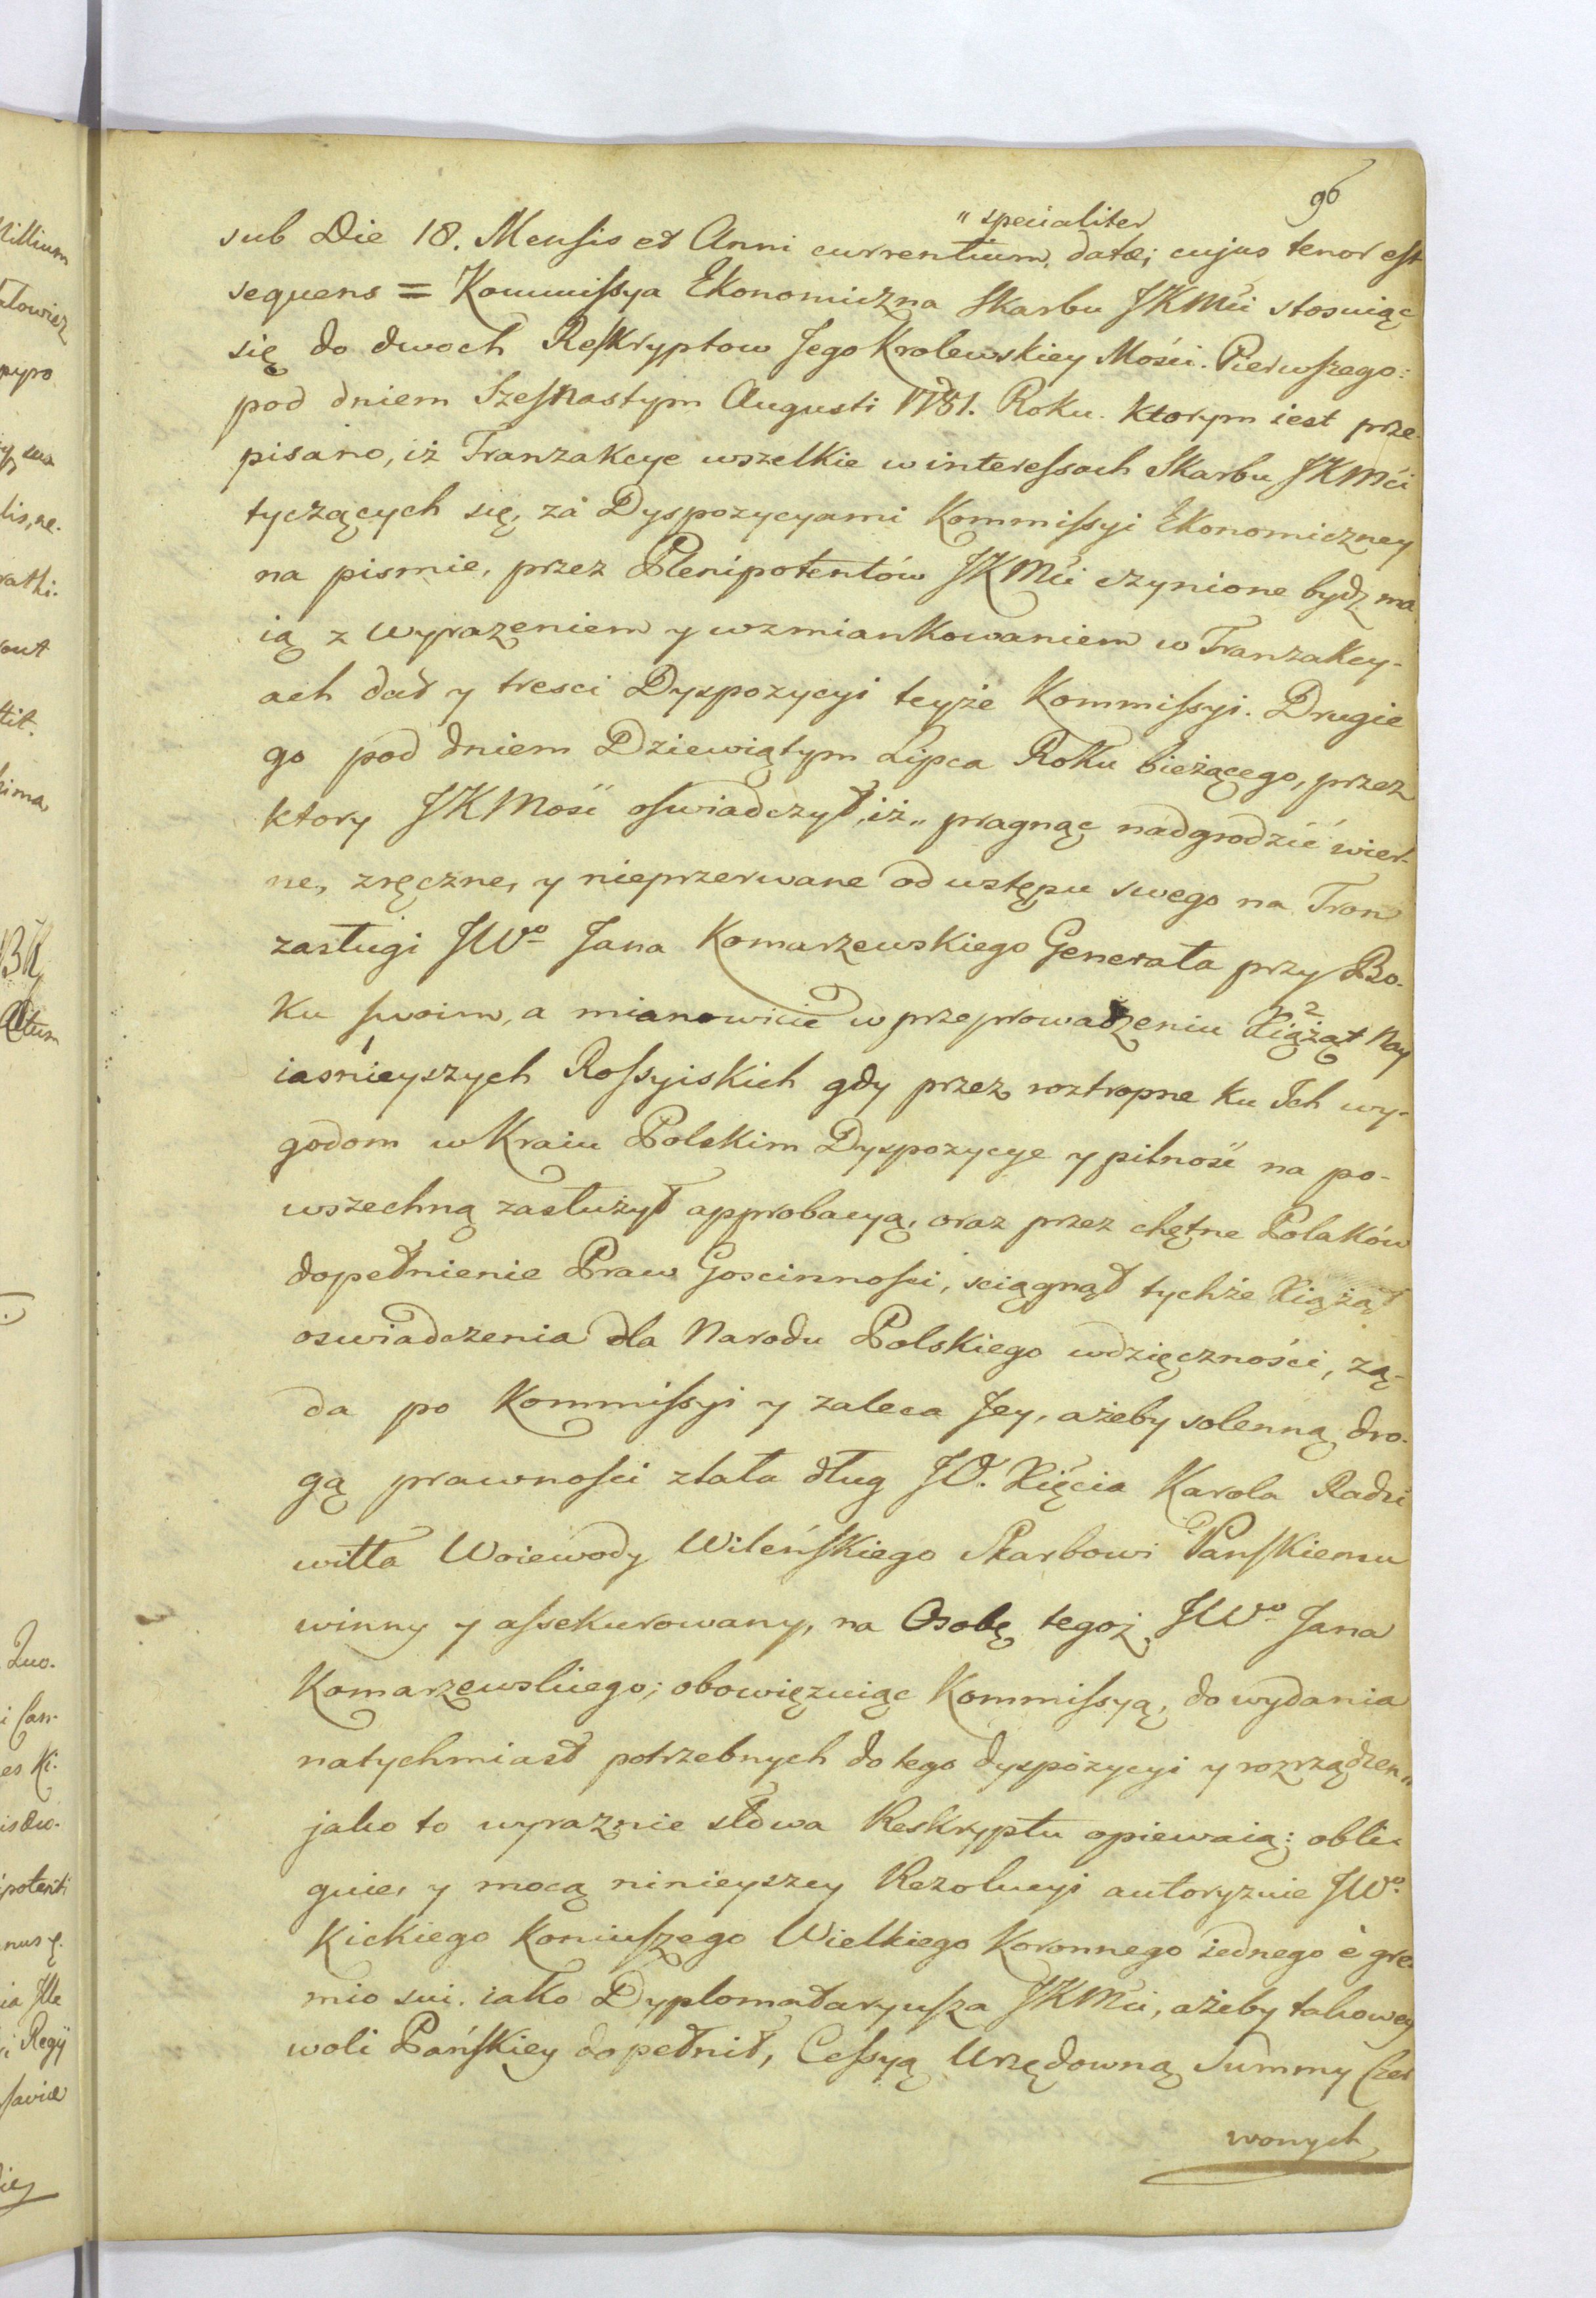 96
" specialiter
sub Die 18. Mensis et Anni currentium, datæ; cujus tenor est
sequens = Kommissya Ekonomiczna Skarbu JKMći stosuiąc
się do dwoch Reskryptow Jego Krolewskiey Mości. Pierwszego:
pod dniem Szesnastym Augusti 1781. Roku. ktorym iest prze-
pisano, iż Tranzakcye wszelkie w interessach Skarbu JKMći
tyczących się, za Dyspozycyami Kommissyi Ekonomiczney
na pismie, przez Plenipotentów JKMći czynione bydz ma
ią z wyrazeniem y wzmiankowaniem w Tranzakcy-
ach dat y tresci Dyspozycyi teyże Kommissyi. Drugie
go pod dniem Dziewiątym Lipca Roku bieżącego, przez
ktory JKMość oswiadczył, iż „ pragnąc nadgrodzić wier-
ne, zręczne, y nieprzerwane od wstępu swego na Tron
zasługi JWo Jana Komarzewskiego Generała przy Bo-
ku swoim, a mianowicie w przeprowadzeniu Xiążąt Nay
iasnieyszych Rossyiskich gdy przez roztropne ku Ich wy-
godom w Kraiu Polskim Dyspozycye y pilność na po-
wszechną zasłużył approbacyą, oraz przez chętne Polaków
dopełnienie Praw Goscinności, sciągnął tychże Xiążąt
oswiadczenia dla Narodu Polskiego wdzięczności, żą-
da po Kommissyi y zaleca Jey, ażeby solenną dro-
gą prawności zlała dług JO. Xięcia Karola Radzi
wiłła Woiewody Wileńskiego Skarbowi Panskiemu
winny y assekurowany, na Osobę tegoż JWo Jana
Komarzewskiego; obowięzuiąc Kommissyą, do wydania
natychmiast potrzebnych do tego dyspozycyi y rozrządzen„
jako to wyraznie słowa Reskryptu opiewaią: obli-
guie, y mocą ninieyszey Rezolucyi autoryzuie JWo
Kickiego Koniuszego Wielkiego Koronnego iednego è gre-
mio sui. iako Dyplomataryusza JKMći, ażeby takowey
woli Pańskiey dopełnił, Cessyą Urzędowną Summy Czer
wonych